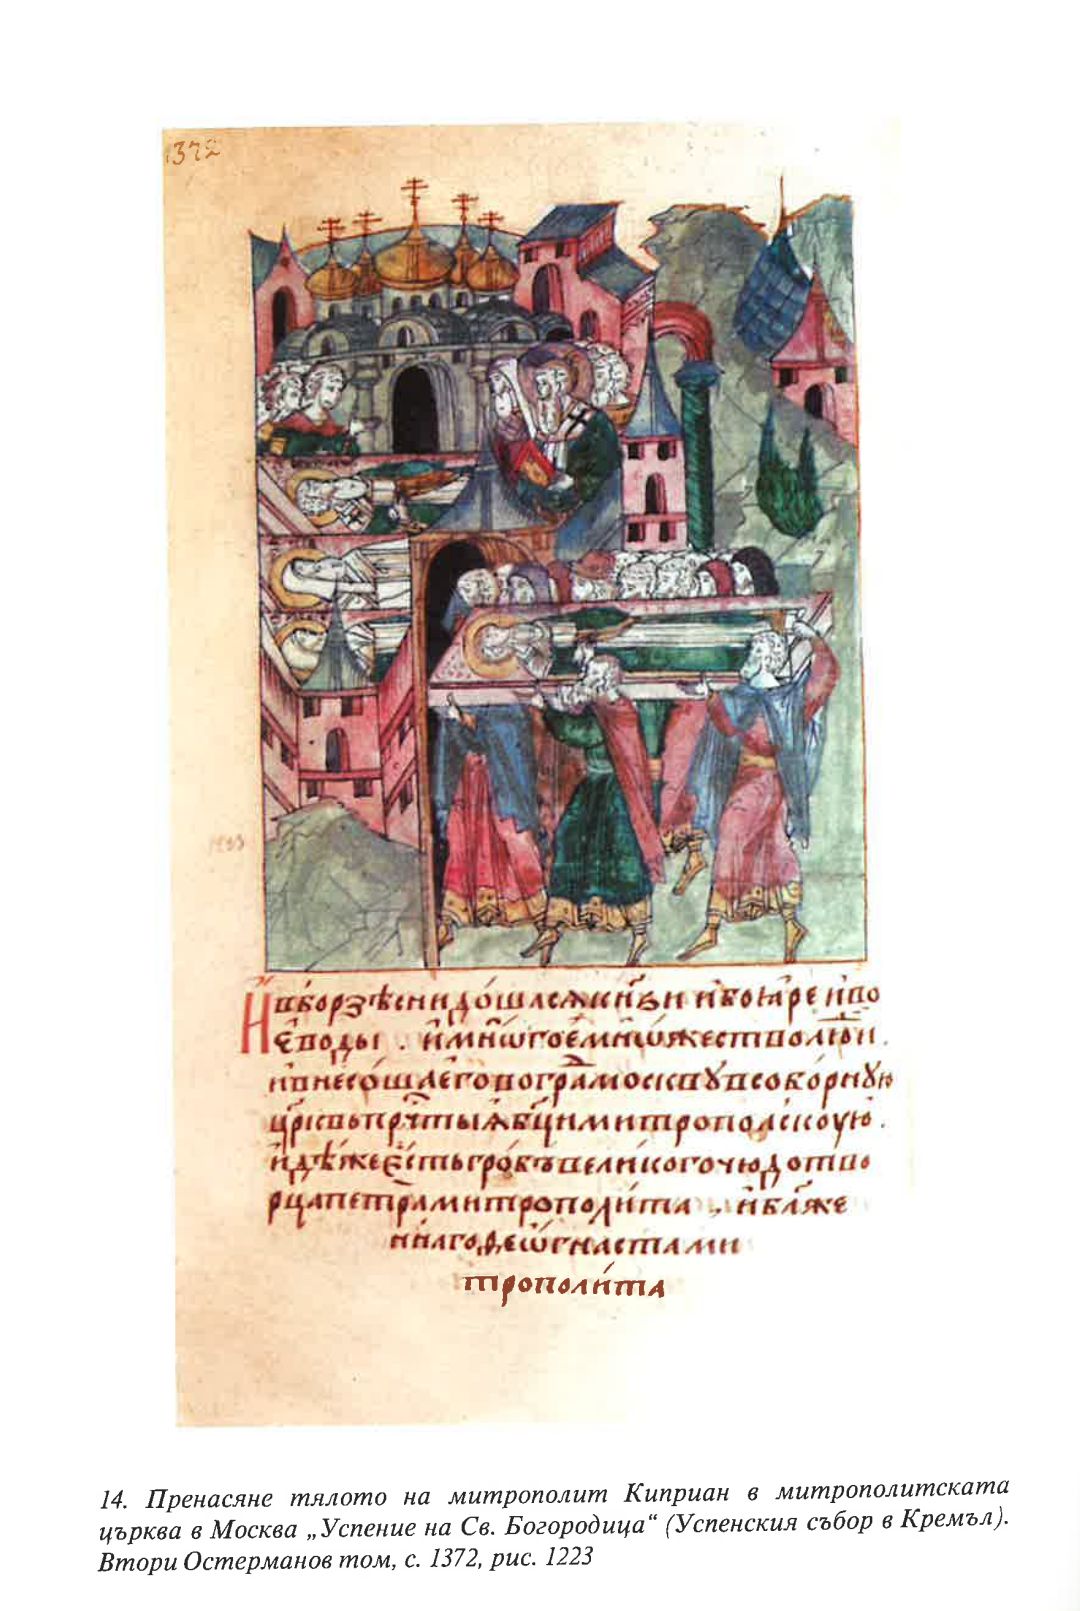 1372
И вборзѣ снидошася кнѧзи и боѧре и во
еводы . и мнѡгое мнѡжество людїи .
и внесоша его во гра москву в соборную
црковь прчтыѧ бцы митрополскую .
идѣже есть гробъ великого чюдотво
рца петра митрополита . и блаже
ннаго феѡгнаста ми
трополита
14. Пренасяне тялото на митрополит Киприан в митрополитската
църква в Москва „Успение на Св. Богородица“ (Успенския събор в Кремъл).
Втори Остерманов том, с. 1372, рис. 1223